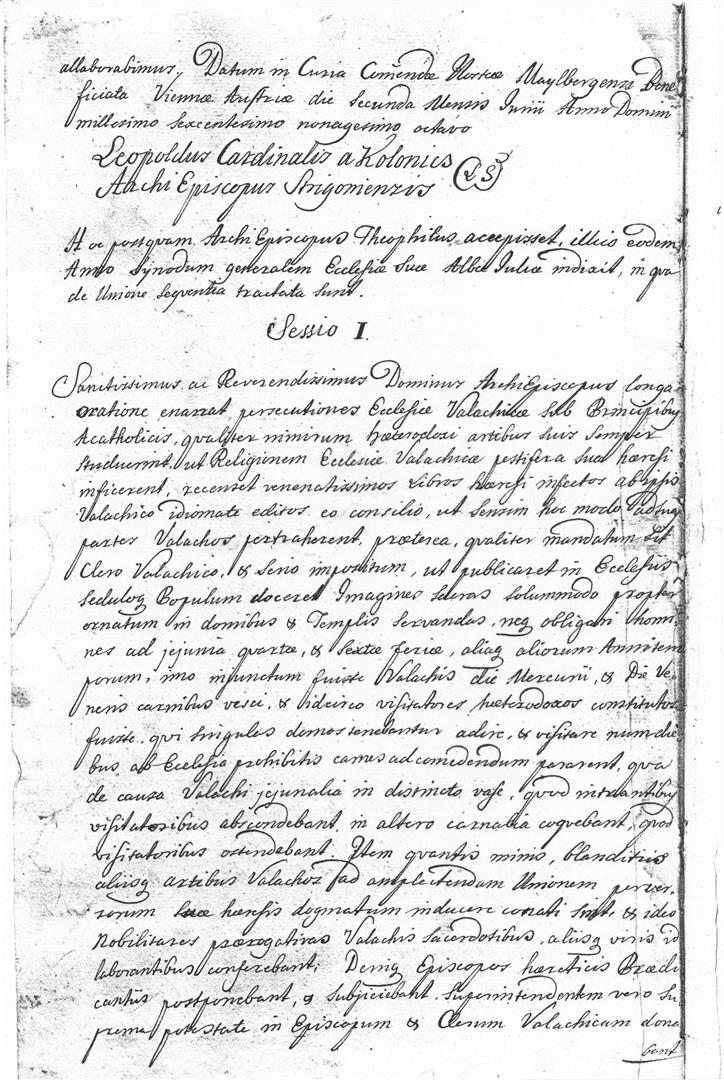 allaborabimus. Datum in Curia Comendæ Nostræ Maylbergensis Bene
ficiata Viennæ Austriæ die secunda Mensis Junii Anno Domini
millesimo sexcentesimo nonagesimo octavo
Leopoldus Cardinalis a Kolonics (LS)
Archi Episcopus Strigoniensis
Hoc postquam ArchiEpiscopus Theophilus accepisset, illico eodem
Anno Synodum generalem Ecclesiæ suæ Albæ Juliæ indixit, in qua
de Unione seqventia tractata sunt.
Sessio I.
Sanctissimus ac Reverendissimus Dominus ArchiEpiscopus longa
oratione enarrat persecutiones Ecclesiæ Valachicæ sub Principibus
Acatholicis, qvaliter nimirum hæterodoxi artibus suis semper
studuerint, ut Religionem Ecclesiæ Valachicæ pestifera sua hæresi
inficerent, recenset venenatissimos Libros hæresi infectos ab ipsis
Valachico idiomate editos eo consilio, ut sensim hoc modo ad suas
partes Valachos pertraherent, præterea, qvaliter mandatum sit
Clero Valachico, & serio impositum, ut publicaret in Ecclesiis
seduloq Populum doceret Imagines sacras solummodo propter
ornatum in domibus & Templis servandas, neq obligari homi
nes ad jejunia quartæ, & sextæ feriæ, aliaq aliorum Anni tem
porum, imo injunctum fuisse Valachis die Mercurii, & Die Ve
neris carnibus vesci, & idcirco visitatores hæterodoxos constitutos
fuisse, qvi singulas domos tenebantur adire, & visitare num die
bus ab Ecclesia prohibitis carnes ad comedendum pararent, qva
de causa Valachi jejunalia in distincto vase, qvod intrantibus
visitatoribus abscondebant, in altero carnalia coquebant, qvod
visitatoribus ostendebant. Item qvantis minis, blanditiis
aliisq artibus Valachos ad amplectendam Unionem perver,
sorum suæ hæresis dogmatum inducere conati sint, & ideo
Nobilitares prærogativas Valachis sacerdotibus, aliisq viris id
laborantibus conferebant; Deniq Episcopos hæreticis Prædi
cantiis postponebant, & subjiciebant, Superintendentem vero su
prema potestate in Episcopum & Clerum Valachicum dona
bant